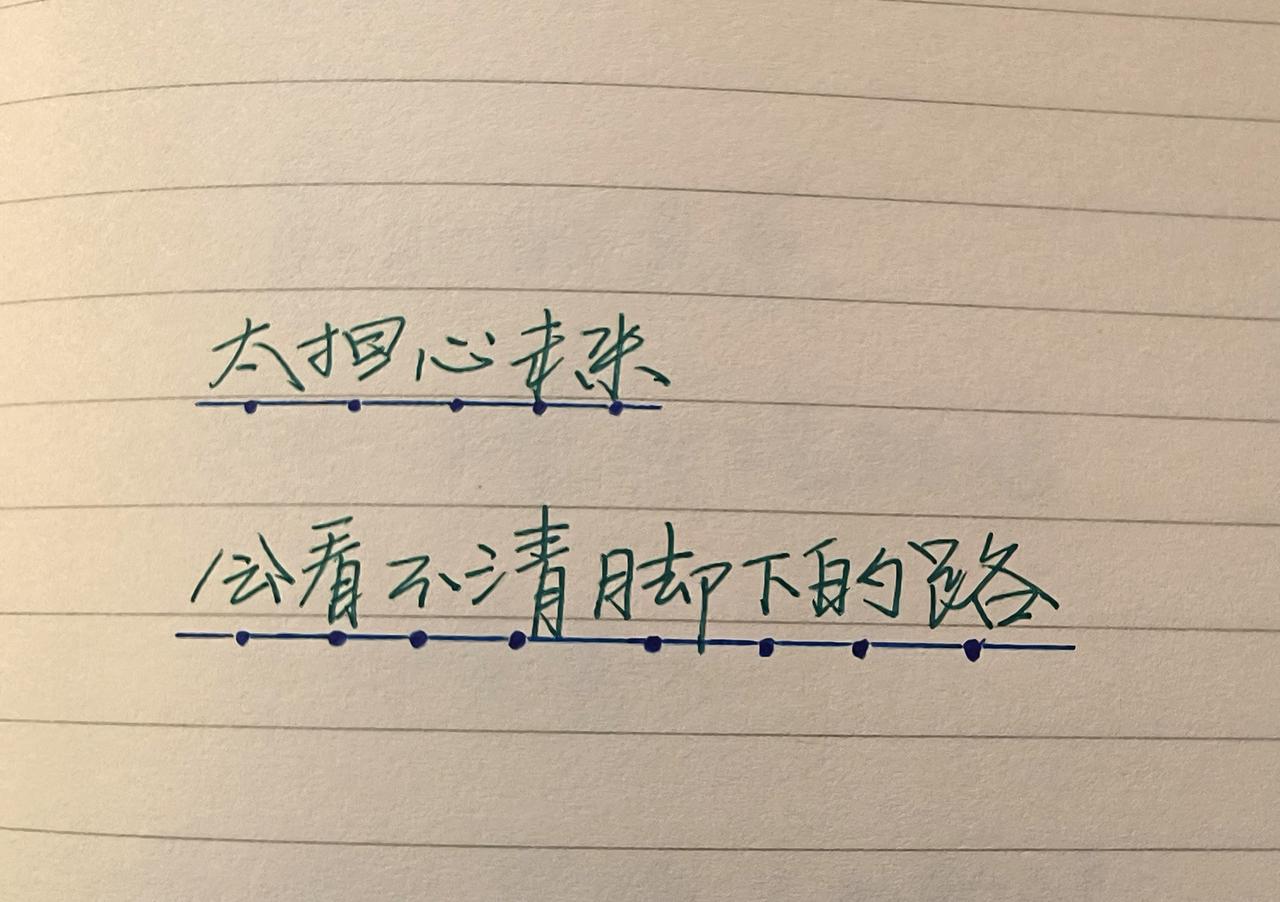 太担心未来
会看不清脚下的路